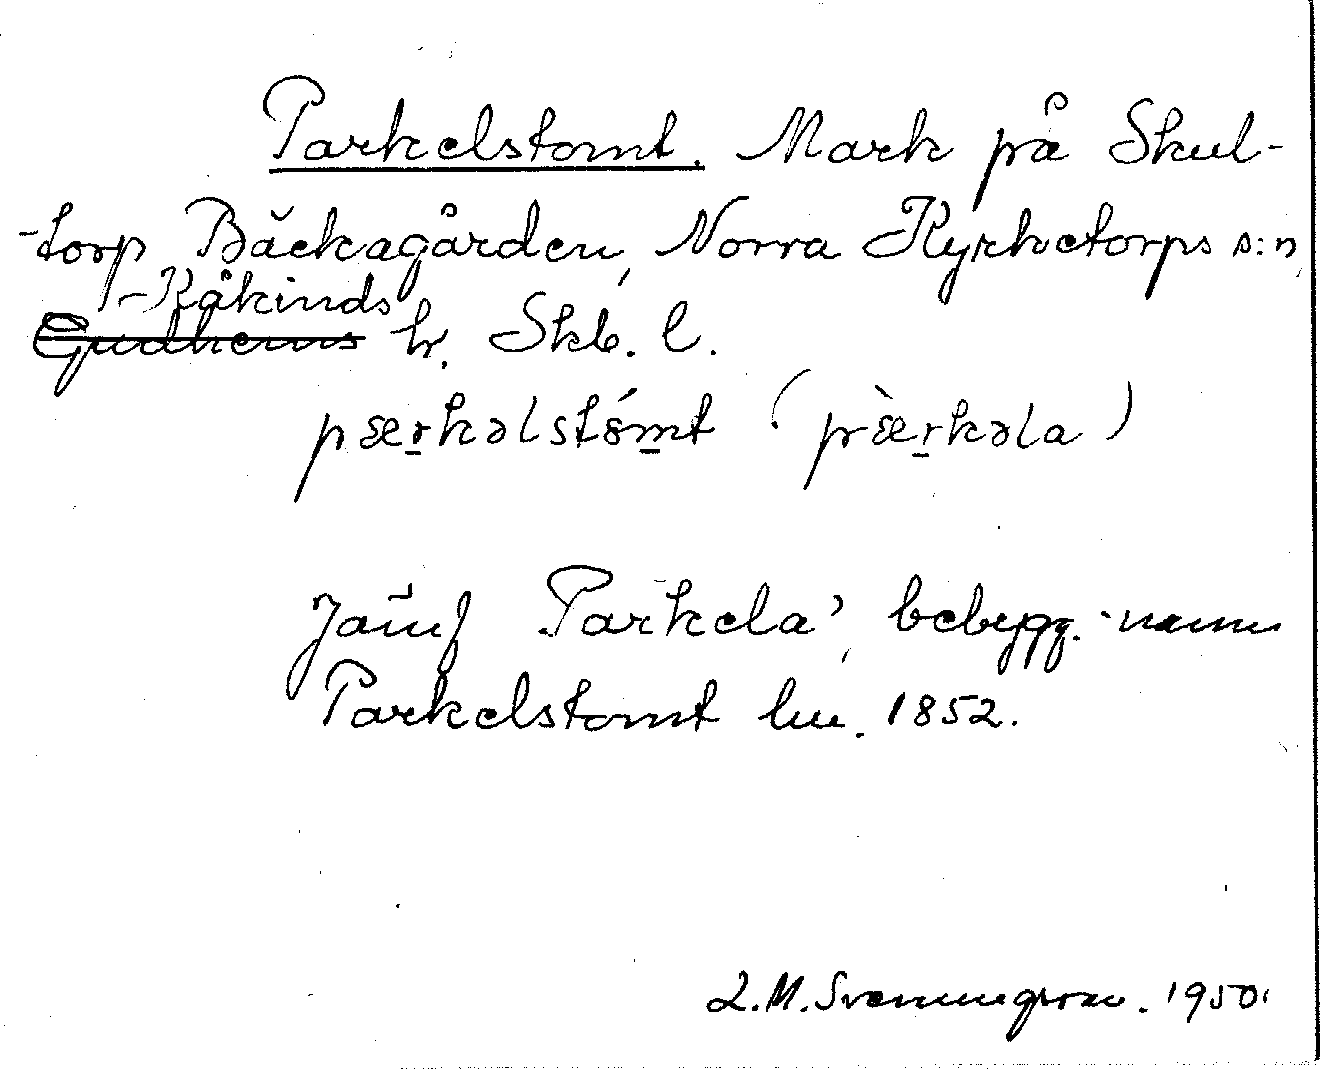 Parkelstomt. Mark på Skul-
-torp Bäckagården, Norra Kyrketorps s:n,
Kåkinds
Gudhems hr. Skb. l.
pærkəlstómt (pæ̀rkəla)
Jämf Parkela, bebygg.-namn
Parkelstomt lm. 1852.
L.M. Svenungsson. 1950.